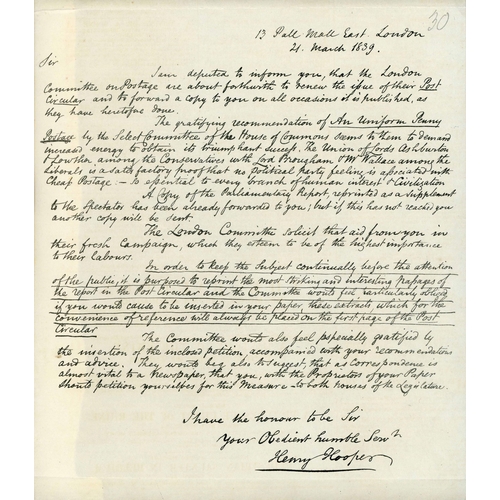 30
13 Pall Mall East. London
21. March 1839.
Sir
I am deputed to inform you, that the London
Committee on Postage are about forthwith to renew the issue of their Post
Circular and to forward a copy to you on all occasions it is published, as
they have heretofore done.
The gratifying recommendation of An Uniform Penny
Postage by the Select Committee of the House of Commons seems to them to demand
increased energy to obtain its triumphant success. The Union of Lords Ashburton
& Lowther among the Conservatives with Lord Brougham & Mr Wallace among the
Liberals is a satisfactory proof that no Political party feeling is associated with
Cheap Postage:- So essential to every branch of human interest & Civilization
A Copy of the Parliamentary Report, reprinted as a Supplement
to the Spectator has been already forwarded to you; but if this has not reached you
another copy will be sent.
The London Committee solicit that aid from you in
their fresh Campaign, which they esteem to be of the highest importance
to their labours.
In order to keep the Subject continually before the attention
of the public, it is purposed to reprint the most striking and interesting passages of
the report in the Post Circular and the Committee would feel particularly obliged
if you would cause to be inserted in your paper, these extracts which for the
convenience of reference will always be placed on the first page of the Post
Circular
The Committee would also feel especially gratified by
the insertion of the inclosed petition, accompanied with your recommendations
and advice. They would beg also to suggest, that as Correspondence is
almost vital to a Newspaper, that you, with the Proprietors of your Paper
should petition yourselves for this Measure to both houses of the Legislature.
I have the honour to be Sir
Your Obedient humble Servt
Henry Hooper